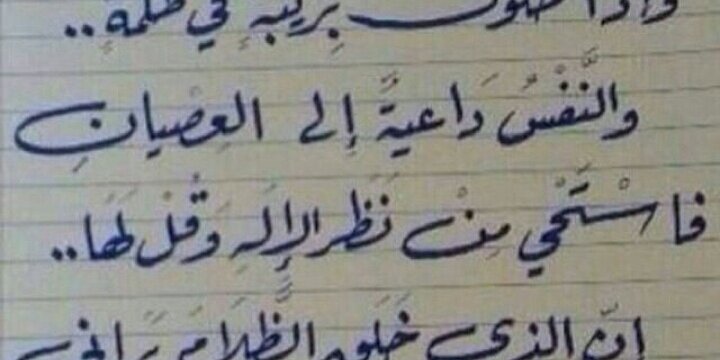 وإذا خلوت بريبةٍ في ظلمةٍ..
والنَّفْسُ دَاعيةٌ إلى العِصْيانِ
فاسْتَحْيِ مِنْ نَظَرِ الإلهِ وَقُلْ لَهَا..
إنّ الذي خَلَقَ الظَّلَامَ يَرَاني